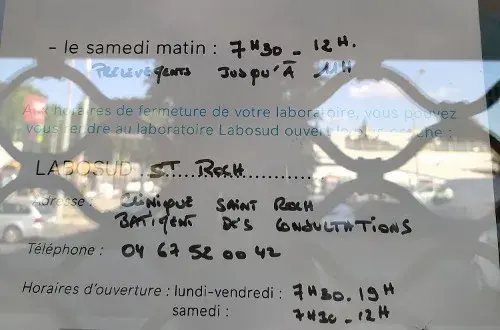 - le samedi matin : 7H30 - 12H.
PRELEVEMENTS JUSQU'À 11H
Aux horaires de fermeture de votre laboratoire, vous pouvez
vous rendre au laboratoire Labosud ouvert le plus proche :
LABOSUD ST ROCH
Adresse : CLINIQUE SAINT ROCH
BATIMENT DES CONSULTATIONS
Téléphone : 04 67 52 00 42
Horaires d'ouverture : lundi-vendredi : 7H30. 19H
samedi : 7H30 - 12H